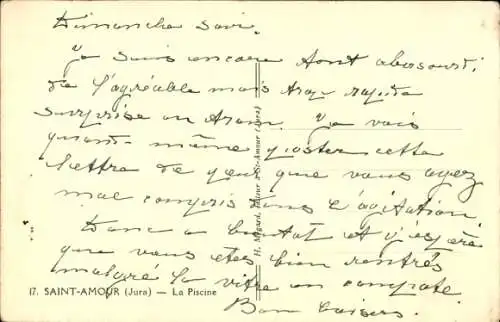 Dimanche soir.
Je suis encore tout abasourdi
de l'agréable mais trop rapide
surprise en Je vais
quand-même poster cette
lettre de peur que vous ayez
mal compris dans l'agitation.
Donc à bientôt et j'espère
que vous êtes bien rentrés
malgré la vitre en compote.
Bons baisers.
H. Mégard, éditeur à St-Amour (Jura)
17. SAINT-AMOUR (Jura) — La Piscine